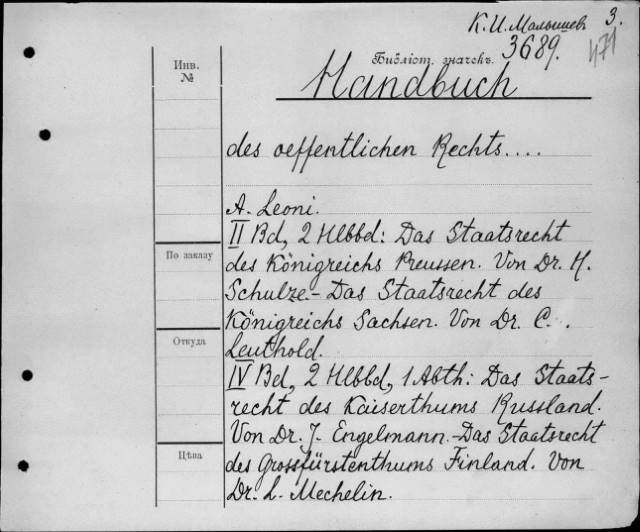 К. И. Малышевъ 3.
3689. 471
Библіот. значекъ.
Инв.
№
Handbuch
des oeffentlichen Rechts....
A. Leoni.
II Bd, 2 Hlbbd: Das Staatsrecht
По заказу
des Königreichs Preussen. Von Dr. H.
Schulze.- Das Staatsrecht des
Königreichs Sachsen. Von Dr. C. .
Откуда
Leuthold.
IV Bd, 2 Hlbbd, 1 Abth: Das Staats-
recht des Kaiserthums Russland.
Von Dr. J. Engelmann.-Das Staatsrecht
Цѣна
des Grossfürstenthums Finland. Von
Dr. L. Mechelin.